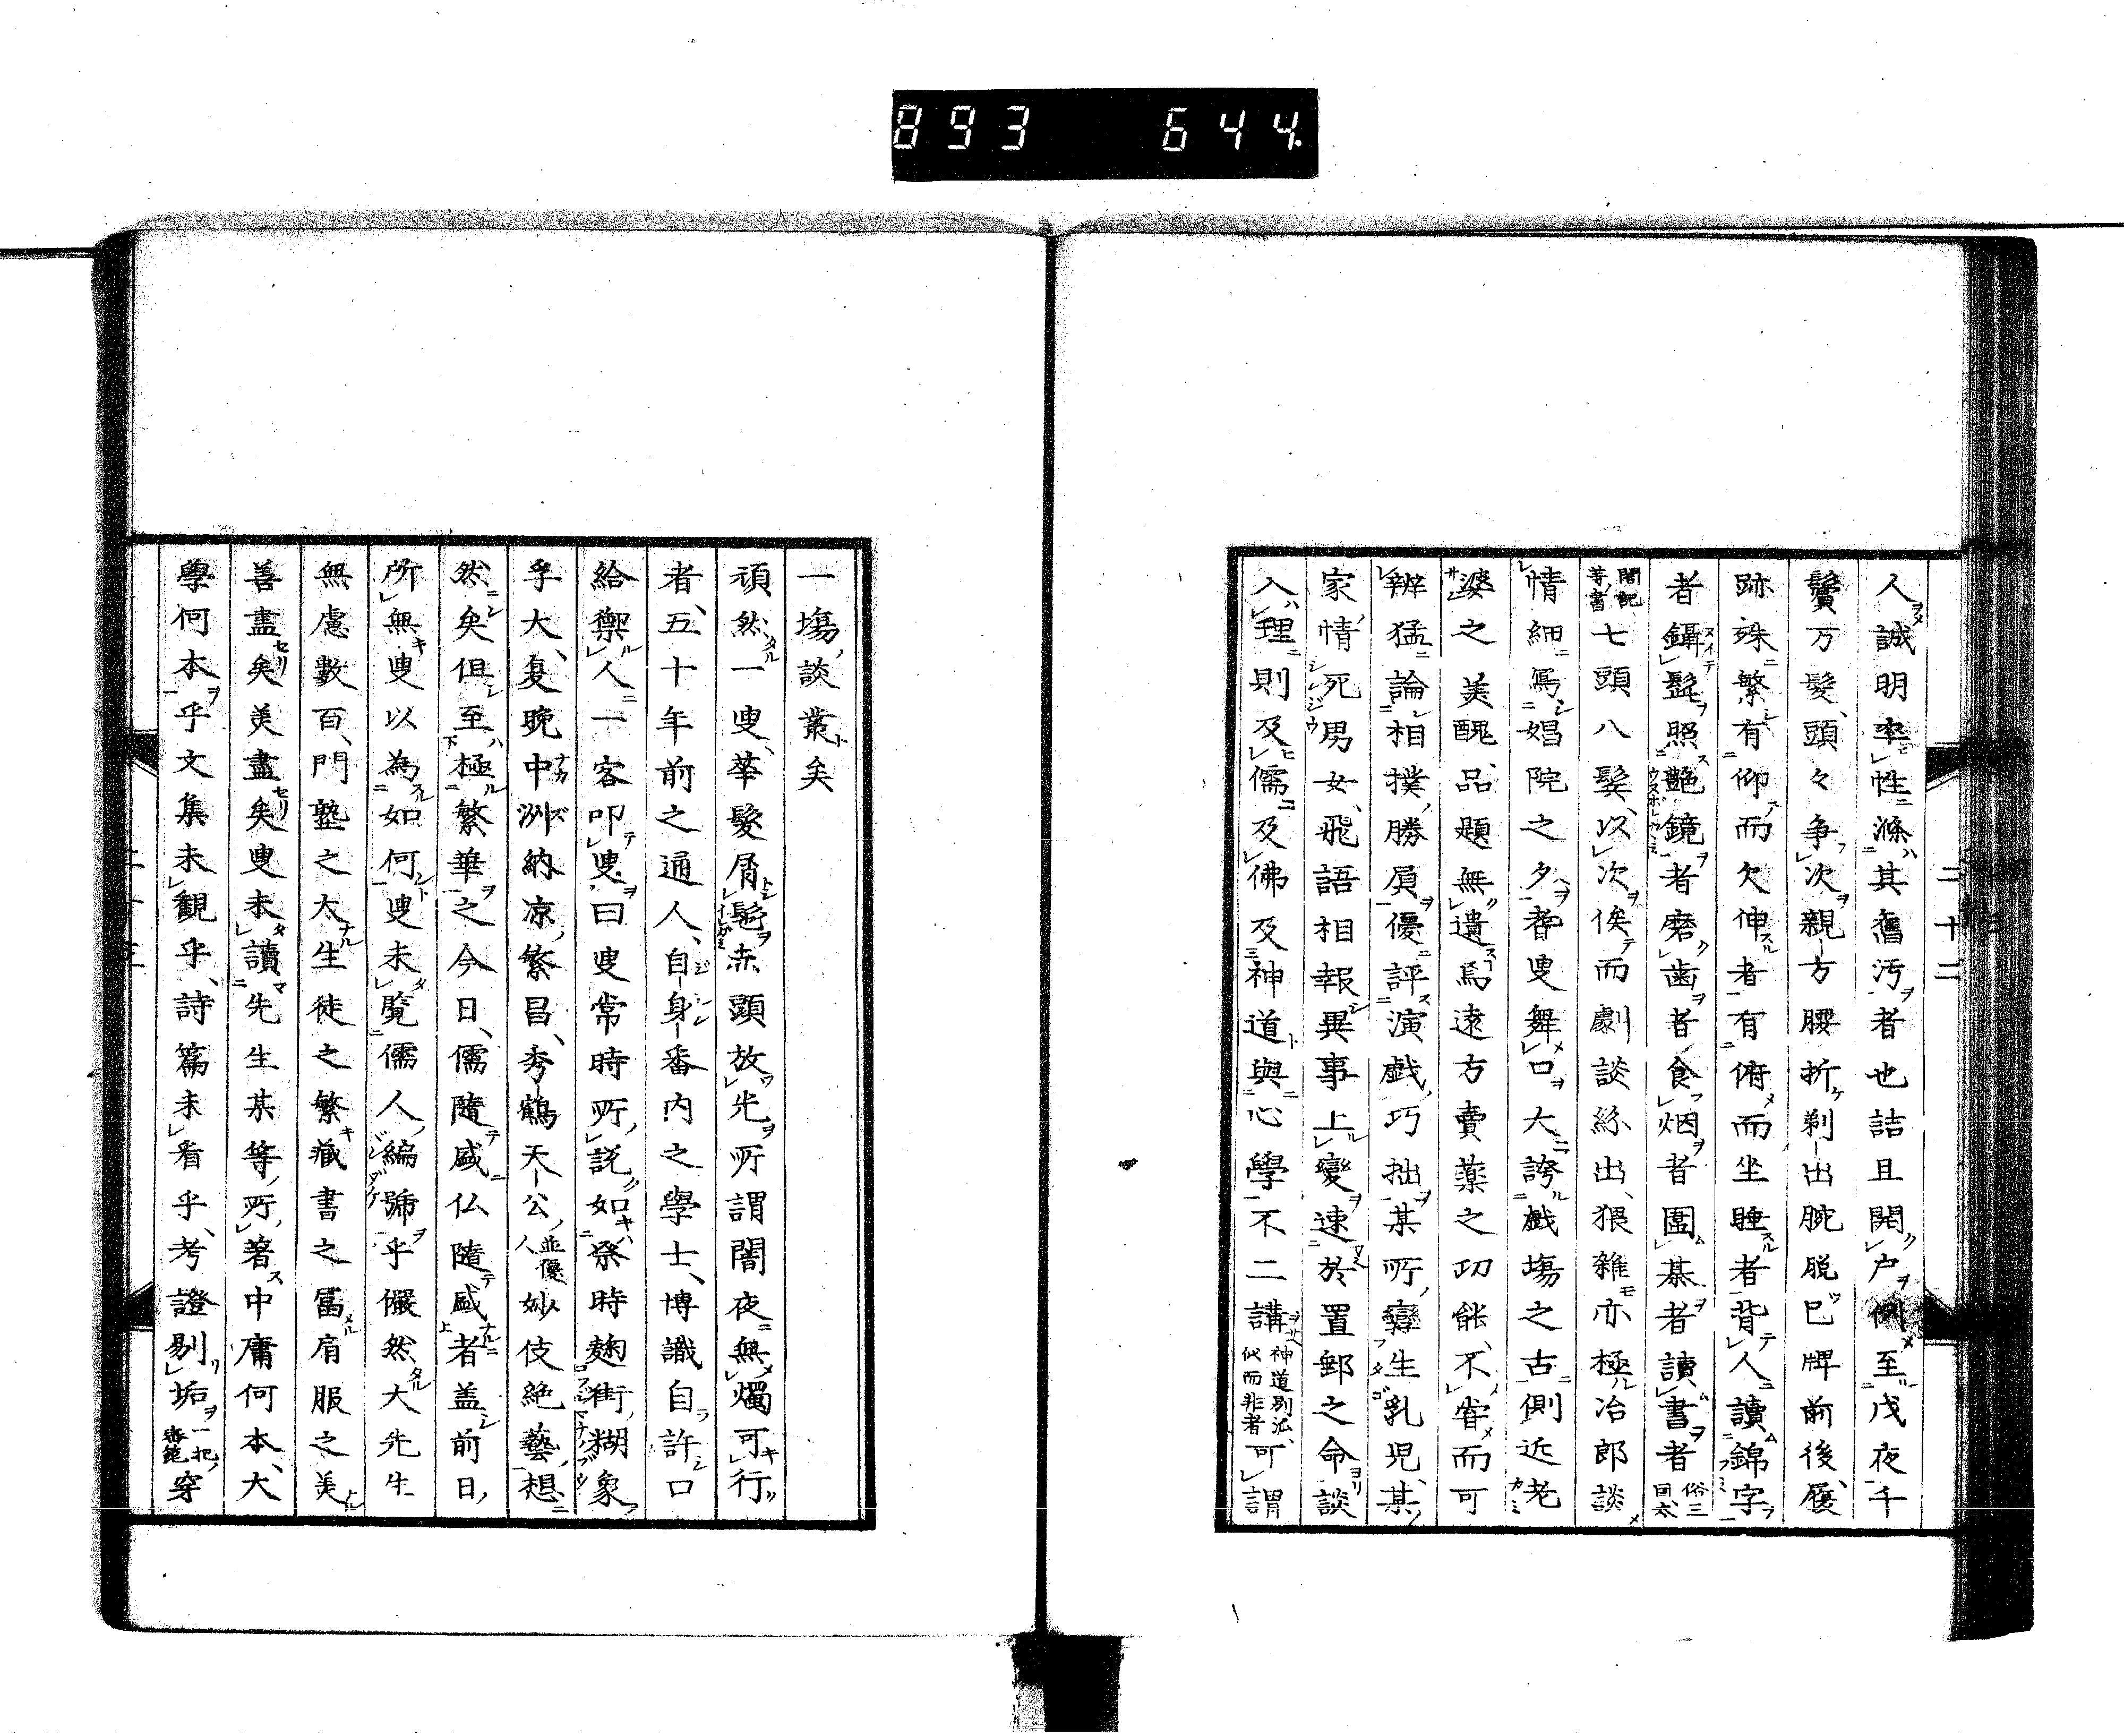 893 644
二十二
人誠明率性滌其舊汚者也詰且開戸例至戊夜千
鬢万髮頭々争次親方腰折剃出腕脱巳牌前後履
跡殊繁有仰而欠伸者有俯而坐睡者背人讀錦字
者鑷髭照艶鏡者磨歯者食烟者圍棊者讀書者俗三国太
閤記等書七頭八髮以次俟而劇談絲出猥雑亦極冶郎談
情細寫娼院之夕者叟舞口大誇戯塲之古側近老
婆之美醜品題無遺焉遠方賣薬之功能不省而可
辨猛論相撲勝負優評演戯巧拙某所孿生乳児某
家情死男女飛語相報異事上變速於置郵之命談
入理則及儒及佛及神道與心學不二講神道別派似而非者可謂
一塲談叢矣
頑然一叟華髮屑髱赤顕放光所謂闇夜無燭可行
者五十年前之通人自身番内之學士博識自許口
給禦人一客叩叟曰叟常時所説如祭時麹街糊象
乎大夏晩中洲納凉繁昌秀鶴天公並優人妙伎絶藝想
然矣但至極繁華之今日儒隨盛仏隨盛者盖前日
所無叟以為如何叟未覧儒人編號乎儼然大先生
無慮數百門塾之大生徒之繁蔵書之冨肩服之美
善盡矣美盡矣叟未讀先生某等所著中庸何本大
學何本乎文集未観乎詩篇未看乎考證剔垢一把穿